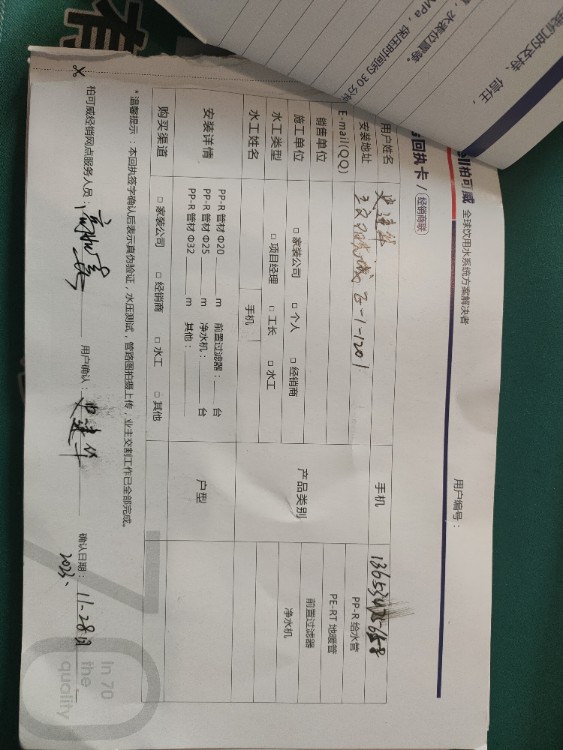 有
我们的支持、信任,
、水表位置等。
MPa,保压时间约30分
柏可威 全球饮用水系统方案解决者
用户编号:
回执卡/经销商联
用户姓名 史建华 手机
安装地址 1-1201
E-mail(QQ)
销售单位
施工单位 □ 家装公司 □ 个人 □ 经销商
水工类型 □ 项目经理 □ 工长 □ 水工
水工姓名 手机
产品类别
PP-R 给水管
PE-RT 地暖管
前置过滤器
净水机
安装详情
PP-R 管材 Φ20 m 前置过滤器: 台
PP-R 管材 Φ25 m 净水机: 台
PP-R 管材 Φ32 m 其他:
户型
购买渠道 □ 家装公司 □ 经销商 □ 水工 □ 其他
*温馨提示:本回执签字确认后表示真伪验证,水压测试,管路图拍摄上传,业主交割工作已全部完成。
柏可威经销网点服务人员: 用户确认:史建华 确认日期:11-28日
2023.
70
In 70
the
quality